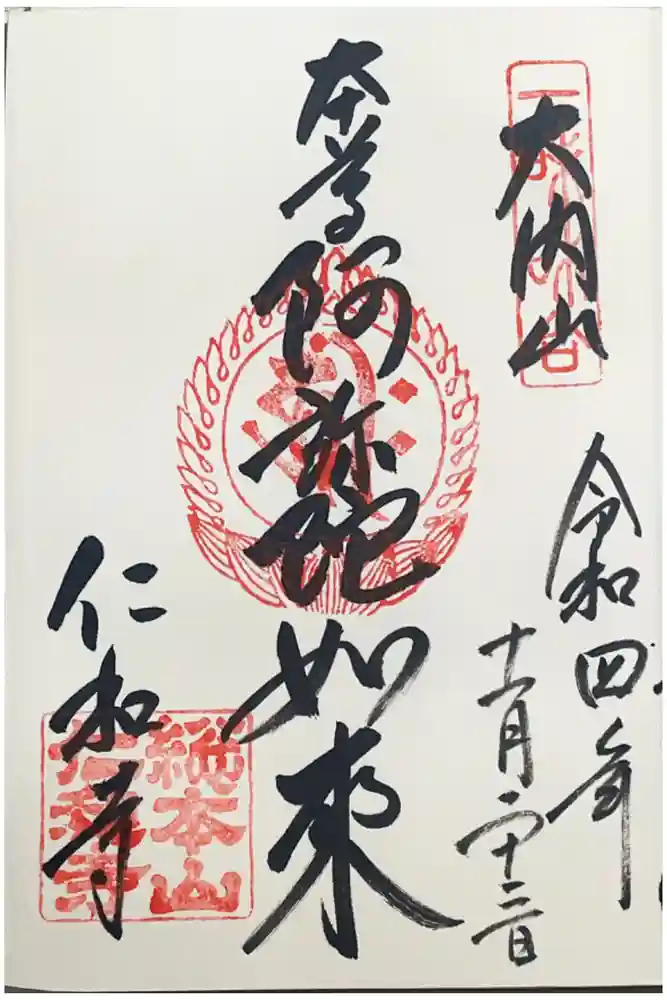 大内山
令和四年
十一月二十三日
本尊阿弥陀如来
仁和寺
總本山
仁和寺